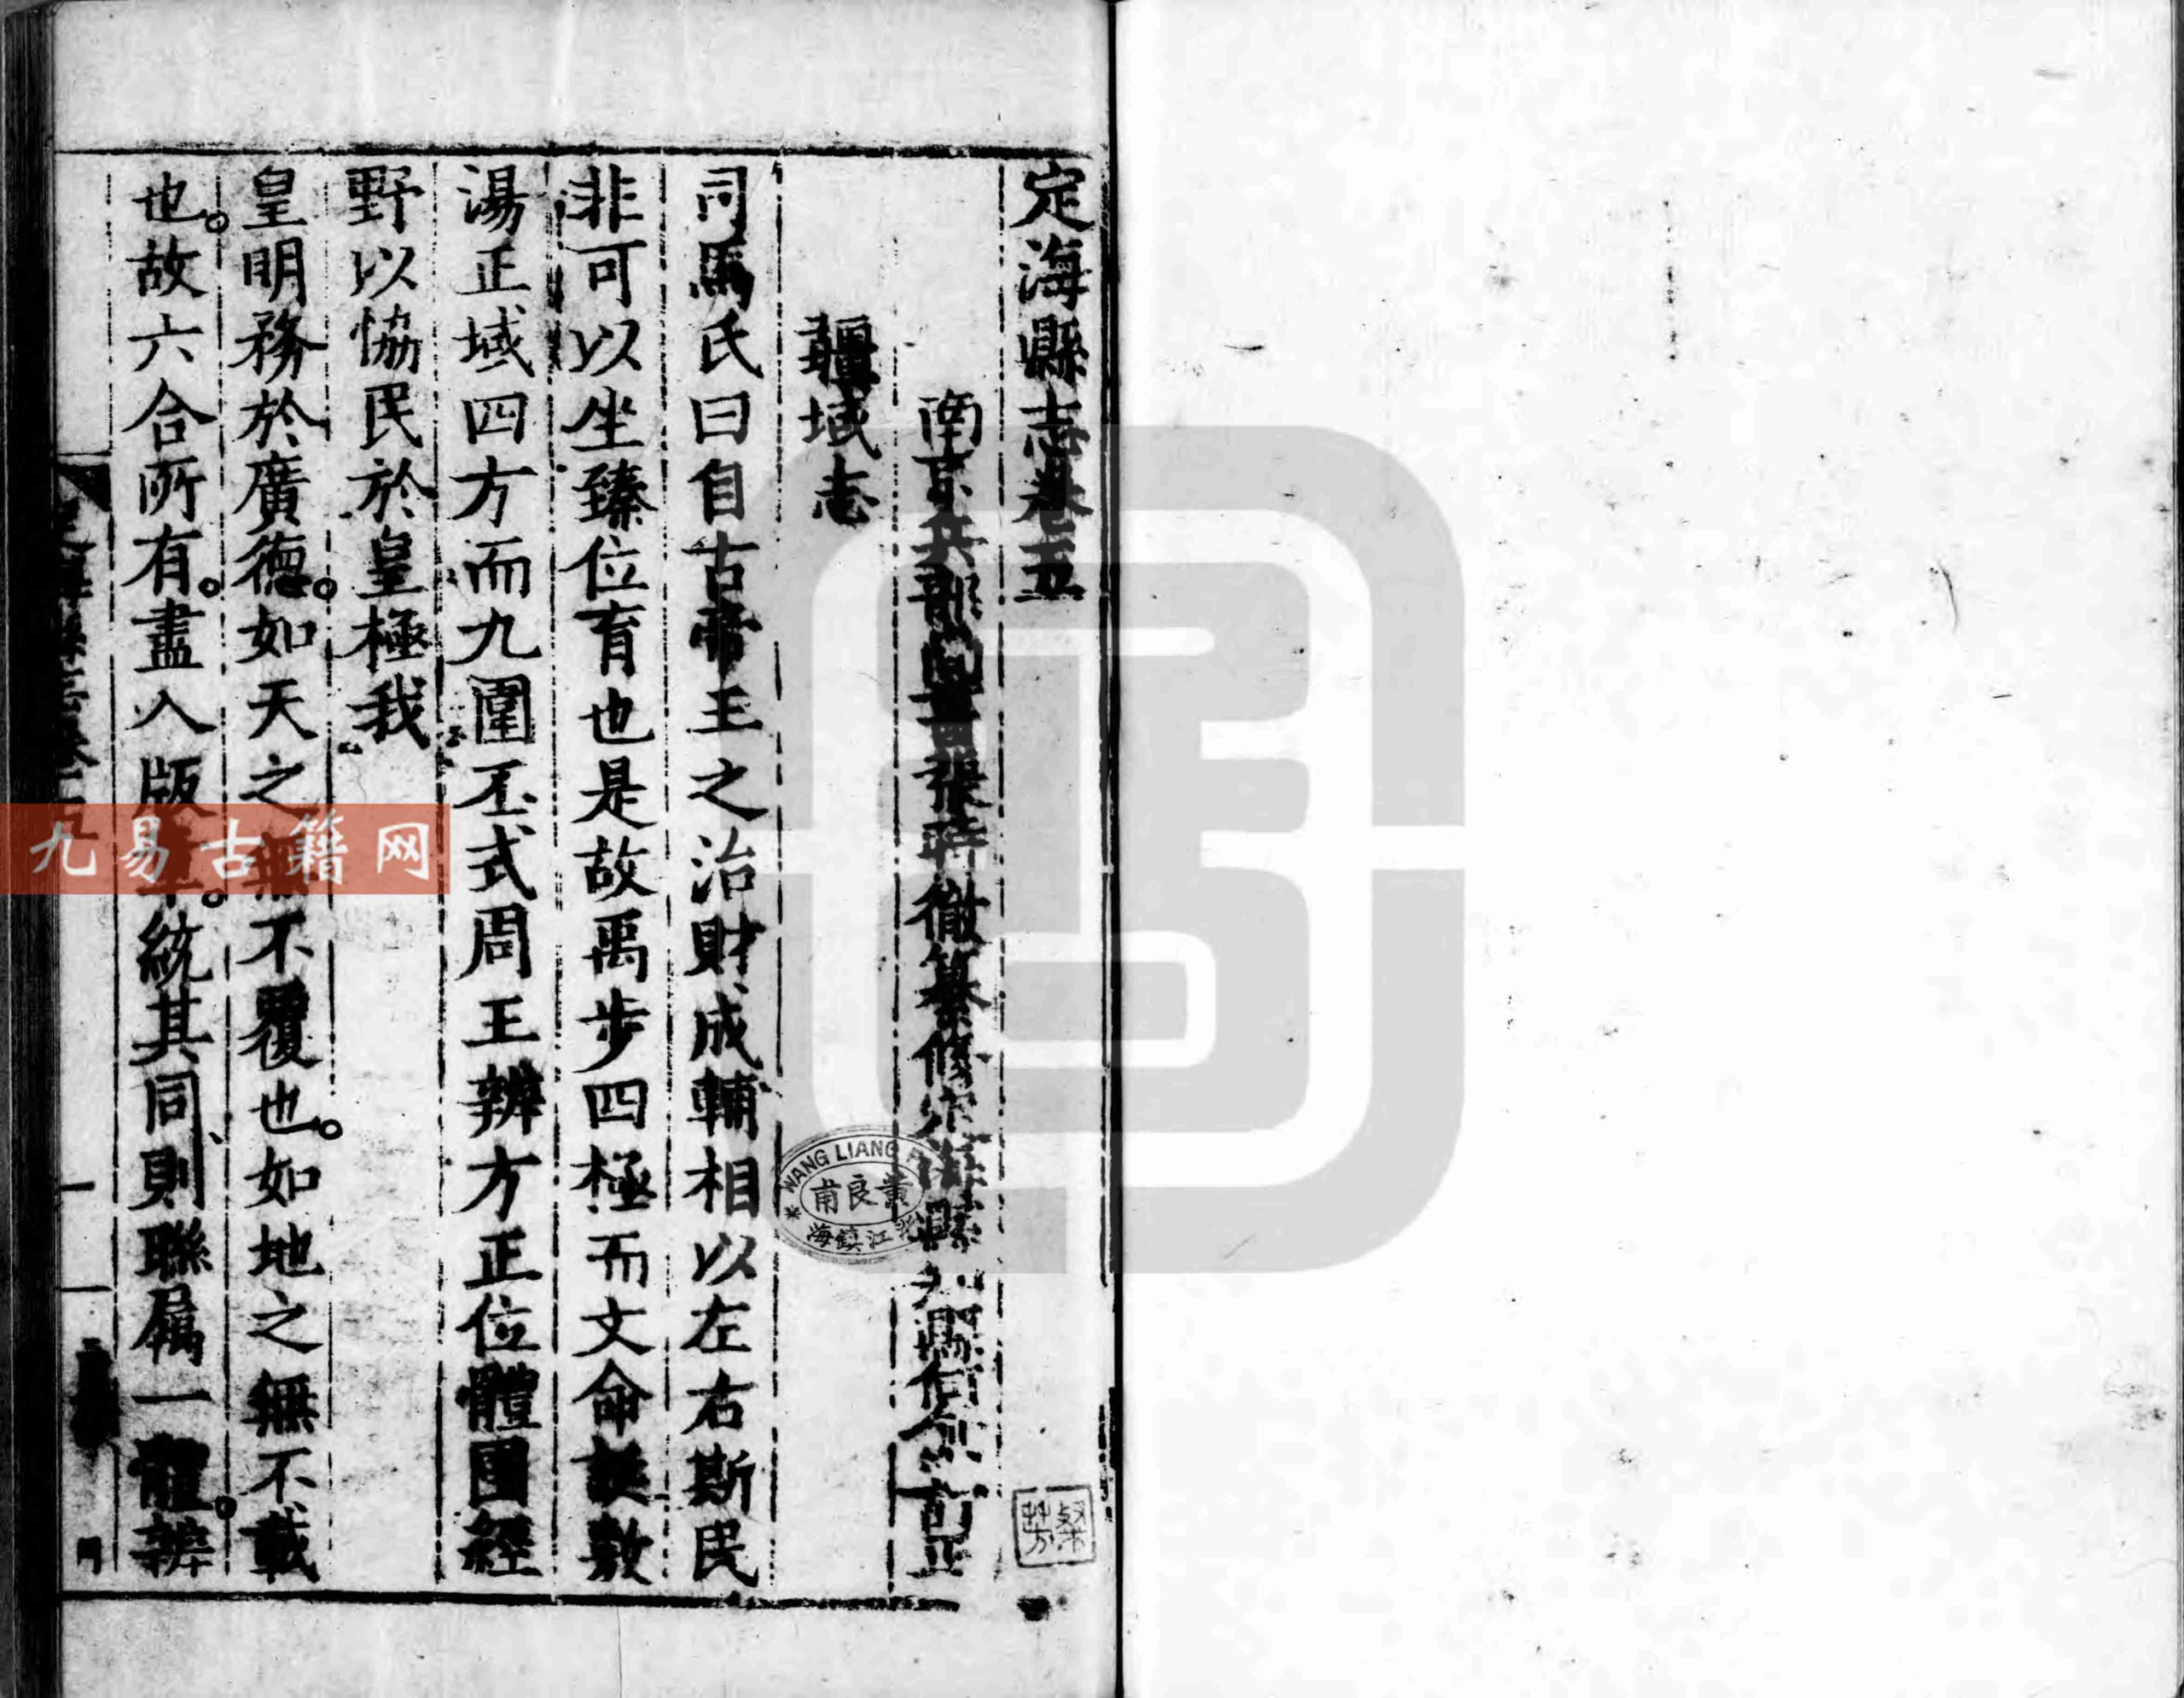 定海縣志卷五
南京兵部尚書張時徹纂修定海縣知縣何愈訂正
疆域志
司馬氏曰自古帝王之治財成輔相以左右斯民
非可以坐臻位育也是故禹步四極而文命誕敷
湯正域四方而九圍丕式周王辨方正位體國經
野以協民於皇極我
皇明務於廣德如天之無不覆也如地之無不載
也故六合所有盡入版章統其同則聯屬一體辨
WANG LIANG F
黃良甫
江鎮海
九易古籍网